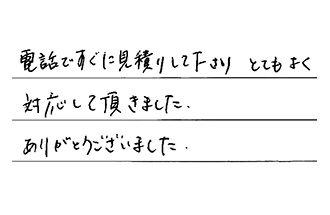 電話ですぐに見積りして下さり とてもよく
対応して頂きました.
ありがとうございました.